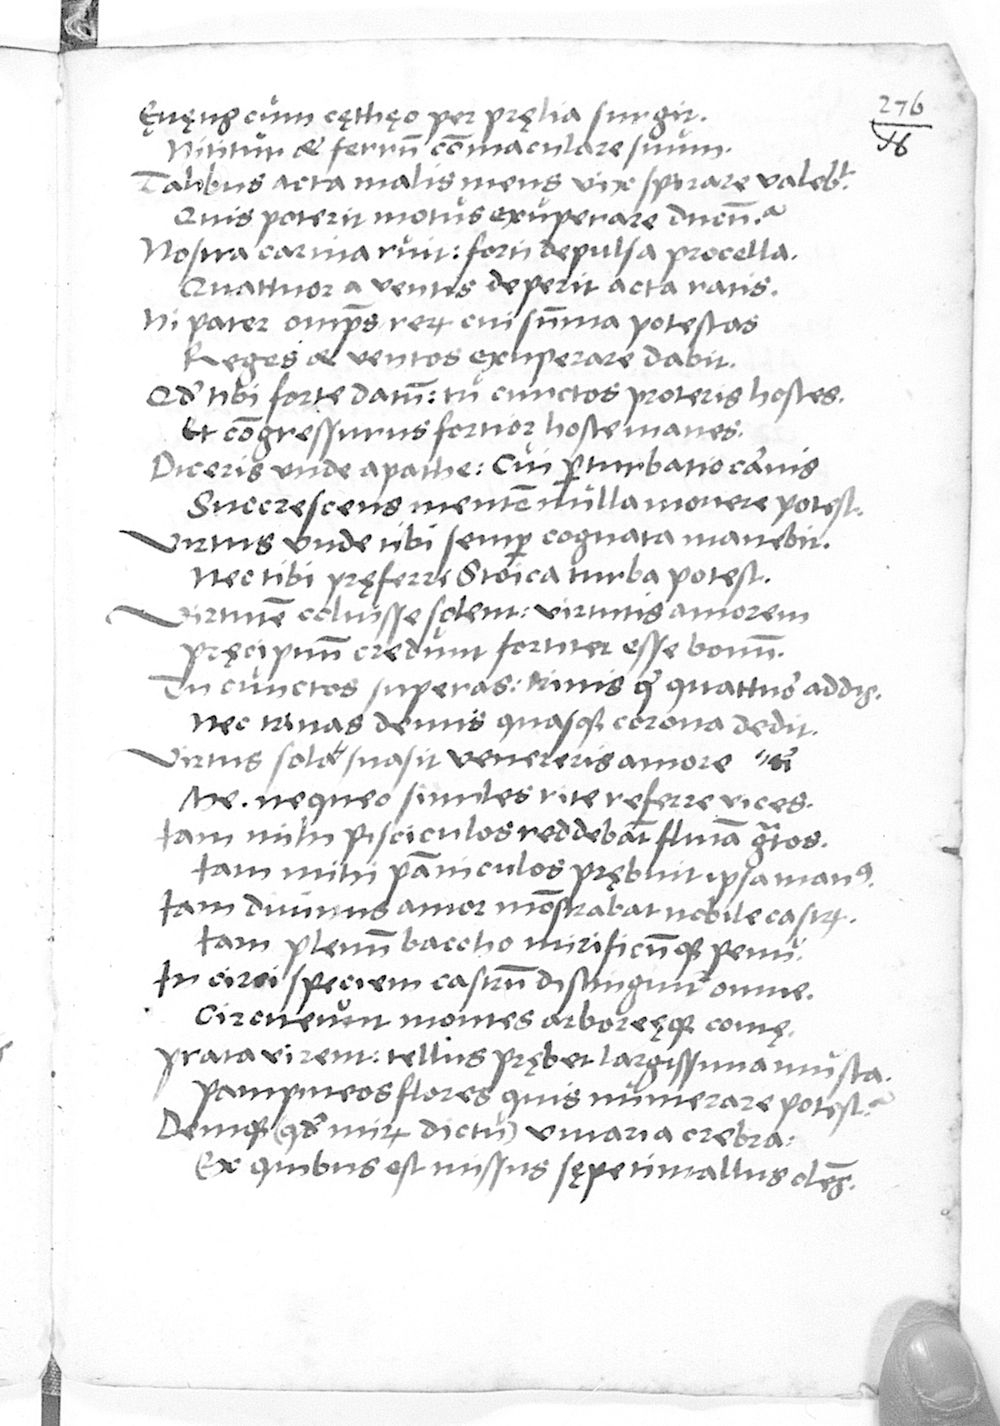 276
16
Ęuęnꝫ cum cęthęo per pręlia surgit.
Nititur & ferrū cōmaculare suum.
Talibus acta malis mens vix spirare valebit.
Quis poterit motus exuperare ducū?
Nostra carina ruit: forti depulsa procella.
Quattuor a ventis deperit acta ratis.
Ni pater omp̄s rerꝝ cui sūma potestas
Reges & ventos exuperare dabit.
Qd' tibi forte datū: tu cunctos proteris hostes.
Et cōgressurus fortior hoste manes.
Diceris vnde apathe: Cui ꝑturbatio carnis
Succrescens mentē nulla mouere potest.
Virtus vnde tibi semꝑ cognata manebit.
Nec tibi pręferre Stoica turba potest.
Virtutē coluisse solent: virtutis amorem
Pręcipuū credunt fortiter esse bonū.
Tu cunctos superas: trinis qꝫ quattuor addis.
Nec trinas demis quasqꝫ corona dedit.
Virtus sola suasit venereris amore
Me. nequeo similes rite referre vices.
Iam mihi pisciculos reddebāt flumīa gratos.
Iam mihi pāniculos prębuit ipsa manꝰ.
Iam diuinus amor mōstrabat nobile castrꝝ.
Iam plenū baccho mirificūqꝫ penu.
In circi speciem castrū distinguitur omne.
Circueunt montes arboreęqꝫ comę.
Prata virent: tellus prębet largissima musta.
Pampineos flores quis numerare potest?
Deniqꝫ (qd' mirꝝ dictu) viuaria crebra:
Ex quibus est missus sępe timallus olēs.